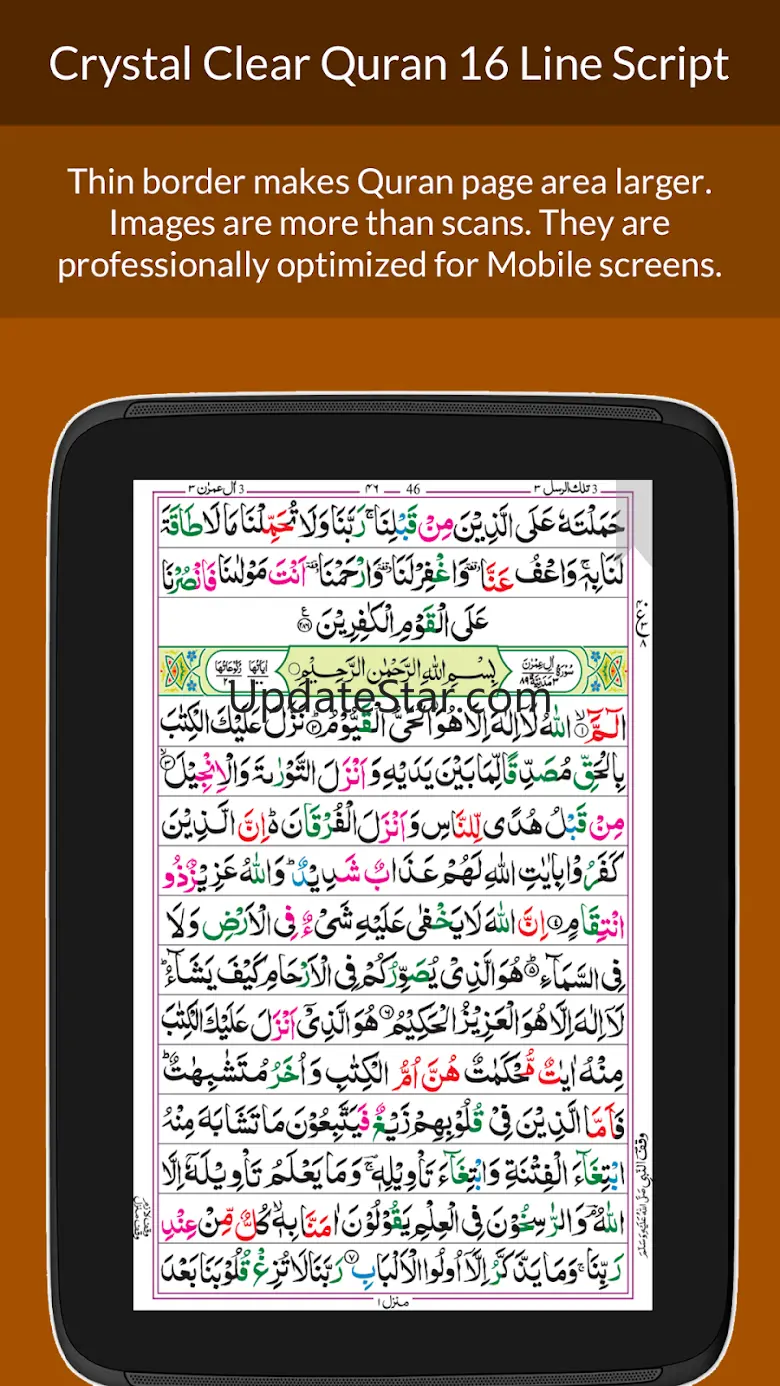 Crystal Clear Quran 16 Line Script
Thin border makes Quran page area larger.
Images are more than scans. They are
professionally optimized for Mobile screens.
تلك الرسل ٣ 3 46 ٤٦ اٰل عمرٰن ٣ 3
حَمَلْتَهٗ عَلَى الَّذِيْنَ مِنْ قَبْلِنَا ۚ رَبَّنَا وَلَا تُحَمِّلْنَا مَا لَا طَاقَةَ
لَنَا بِهٖ ۚ وَاعْفُ عَنَّا وَاغْفِرْ لَنَا وَارْحَمْنَا اَنْتَ مَوْلٰىنَا فَانْصُرْنَا
عَلَى الْقَوْمِ الْكٰفِرِيْنَ ۝٢٨٦
سُوْرَةُ اٰلِ عِمْرٰن مَدَنِيَّةٌ ٨٩ بِسْمِ اللّٰهِ الرَّحْمٰنِ الرَّحِيْمِ اٰيَاتُهَا رُكُوْعَاتُهَا
UpdateStar.com
الٓمّٓ ۝١ اللّٰهُ لَاۤ اِلٰهَ اِلَّا هُوَ الْحَىُّ الْقَيُّوْمُ ۝٢ نَزَّلَ عَلَيْكَ الْكِتٰبَ
بِالْحَقِّ مُصَدِّقًا لِّمَا بَيْنَ يَدَيْهِ وَاَنْزَلَ التَّوْرٰىةَ وَالْاِنْجِيْلَ ۝٣
مِنْ قَبْلُ هُدًى لِّلنَّاسِ وَاَنْزَلَ الْفُرْقَانَ ؕ اِنَّ الَّذِيْنَ
كَفَرُوْا بِاٰيٰتِ اللّٰهِ لَهُمْ عَذَابٌ شَدِيْدٌ ؕ وَاللّٰهُ عَزِيْزٌ ذُو
انْتِقَامٍ ۝٤ اِنَّ اللّٰهَ لَا يَخْفٰى عَلَيْهِ شَىْءٌ فِى الْاَرْضِ وَلَا
فِى السَّمَآءِ ۝٥ هُوَ الَّذِىْ يُصَوِّرُكُمْ فِى الْاَرْحَامِ كَيْفَ يَشَآءُ ؕ
لَاۤ اِلٰهَ اِلَّا هُوَ الْعَزِيْزُ الْحَكِيْمُ ۝٦ هُوَ الَّذِىْۤ اَنْزَلَ عَلَيْكَ الْكِتٰبَ
مِنْهُ اٰيٰتٌ مُّحْكَمٰتٌ هُنَّ اُمُّ الْكِتٰبِ وَاُخَرُ مُتَشٰبِهٰتٌ ؕ
فَاَمَّا الَّذِيْنَ فِىْ قُلُوْبِهِمْ زَيْغٌ فَيَتَّبِعُوْنَ مَا تَشَابَهَ مِنْهُ
ابْتِغَآءَ الْفِتْنَةِ وَابْتِغَآءَ تَاْوِيْلِهٖ ۚ وَمَا يَعْلَمُ تَاْوِيْلَهٗۤ اِلَّا
اللّٰهُ ۘ وَالرّٰسِخُوْنَ فِى الْعِلْمِ يَقُوْلُوْنَ اٰمَنَّا بِهٖ ۙ كُلٌّ مِّنْ عِنْدِ
رَبِّنَا ۚ وَمَا يَذَّكَّرُ اِلَّاۤ اُولُوا الْاَلْبَابِ ۝٧ رَبَّنَا لَا تُزِغْ قُلُوْبَنَا بَعْدَ
وقف النبى صلى الله عليه وسلم
وقف لازم
وقف منزل
منزل ١